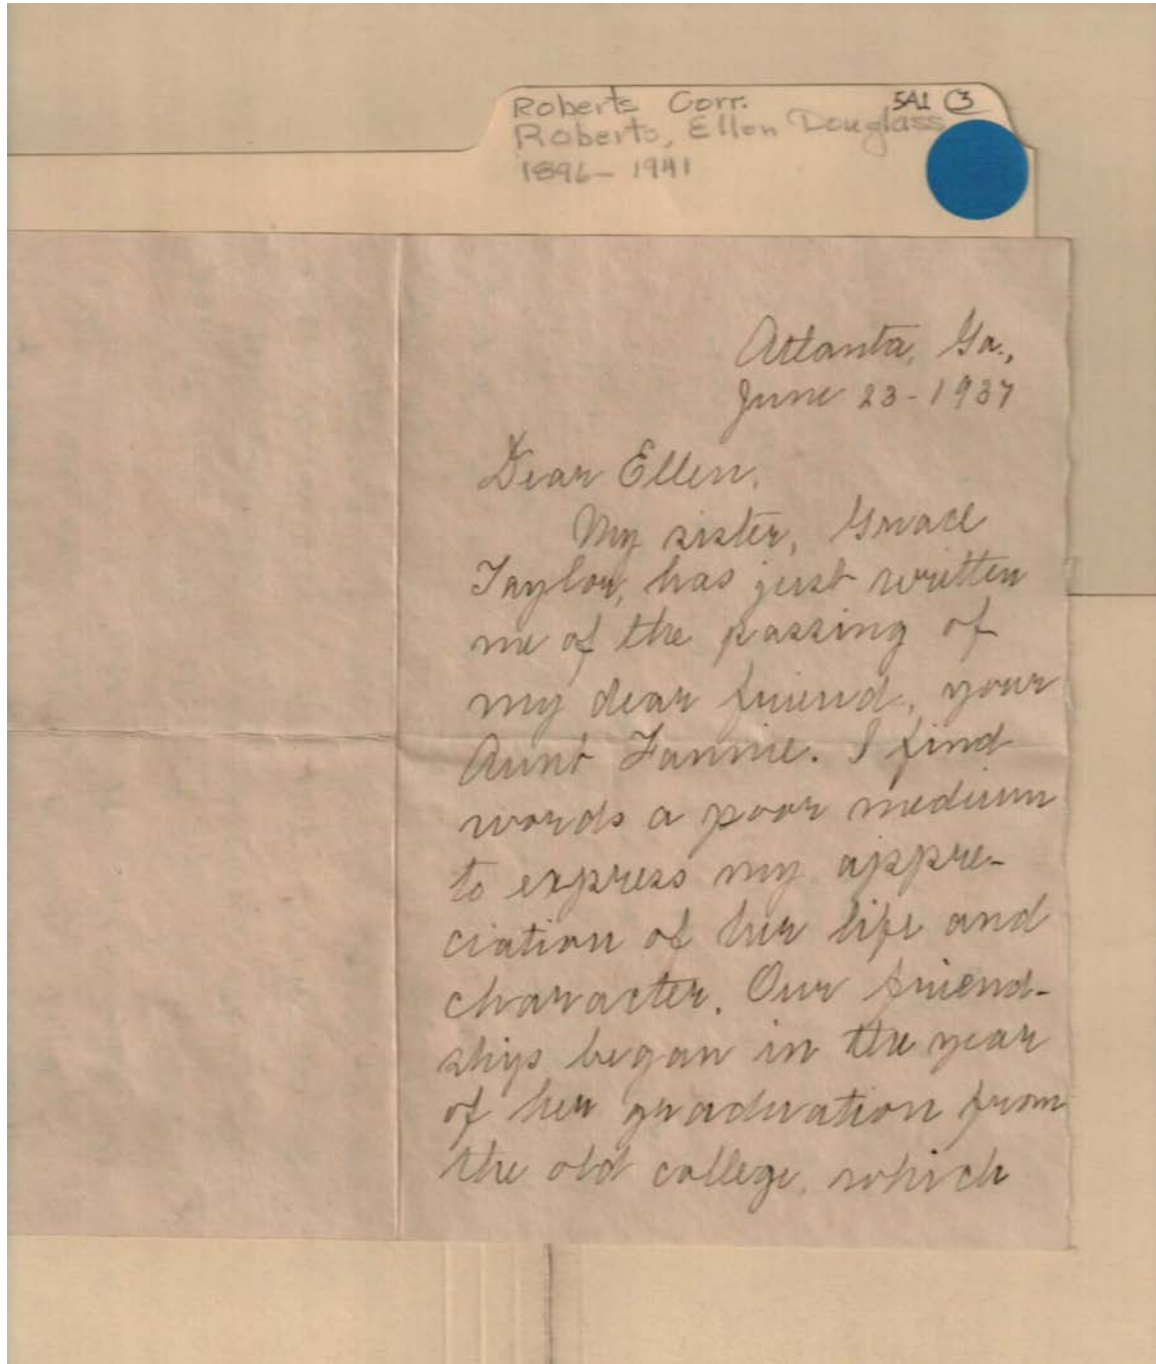 Roberts Corr. 5A1 3
Roberts, Ellen Douglass
1896-1941
Atlanta, Ga.,
June 23-1937
Dear Ellen,
My sister, Grace
Taylor, has just written
me of the passing of
my dear friend, your
Aunt Fannie. I find
words a poor medium
to express my appre-
ciation of her life and
character. Our friend-
ship began in the year
of her graduation from
the old college, which